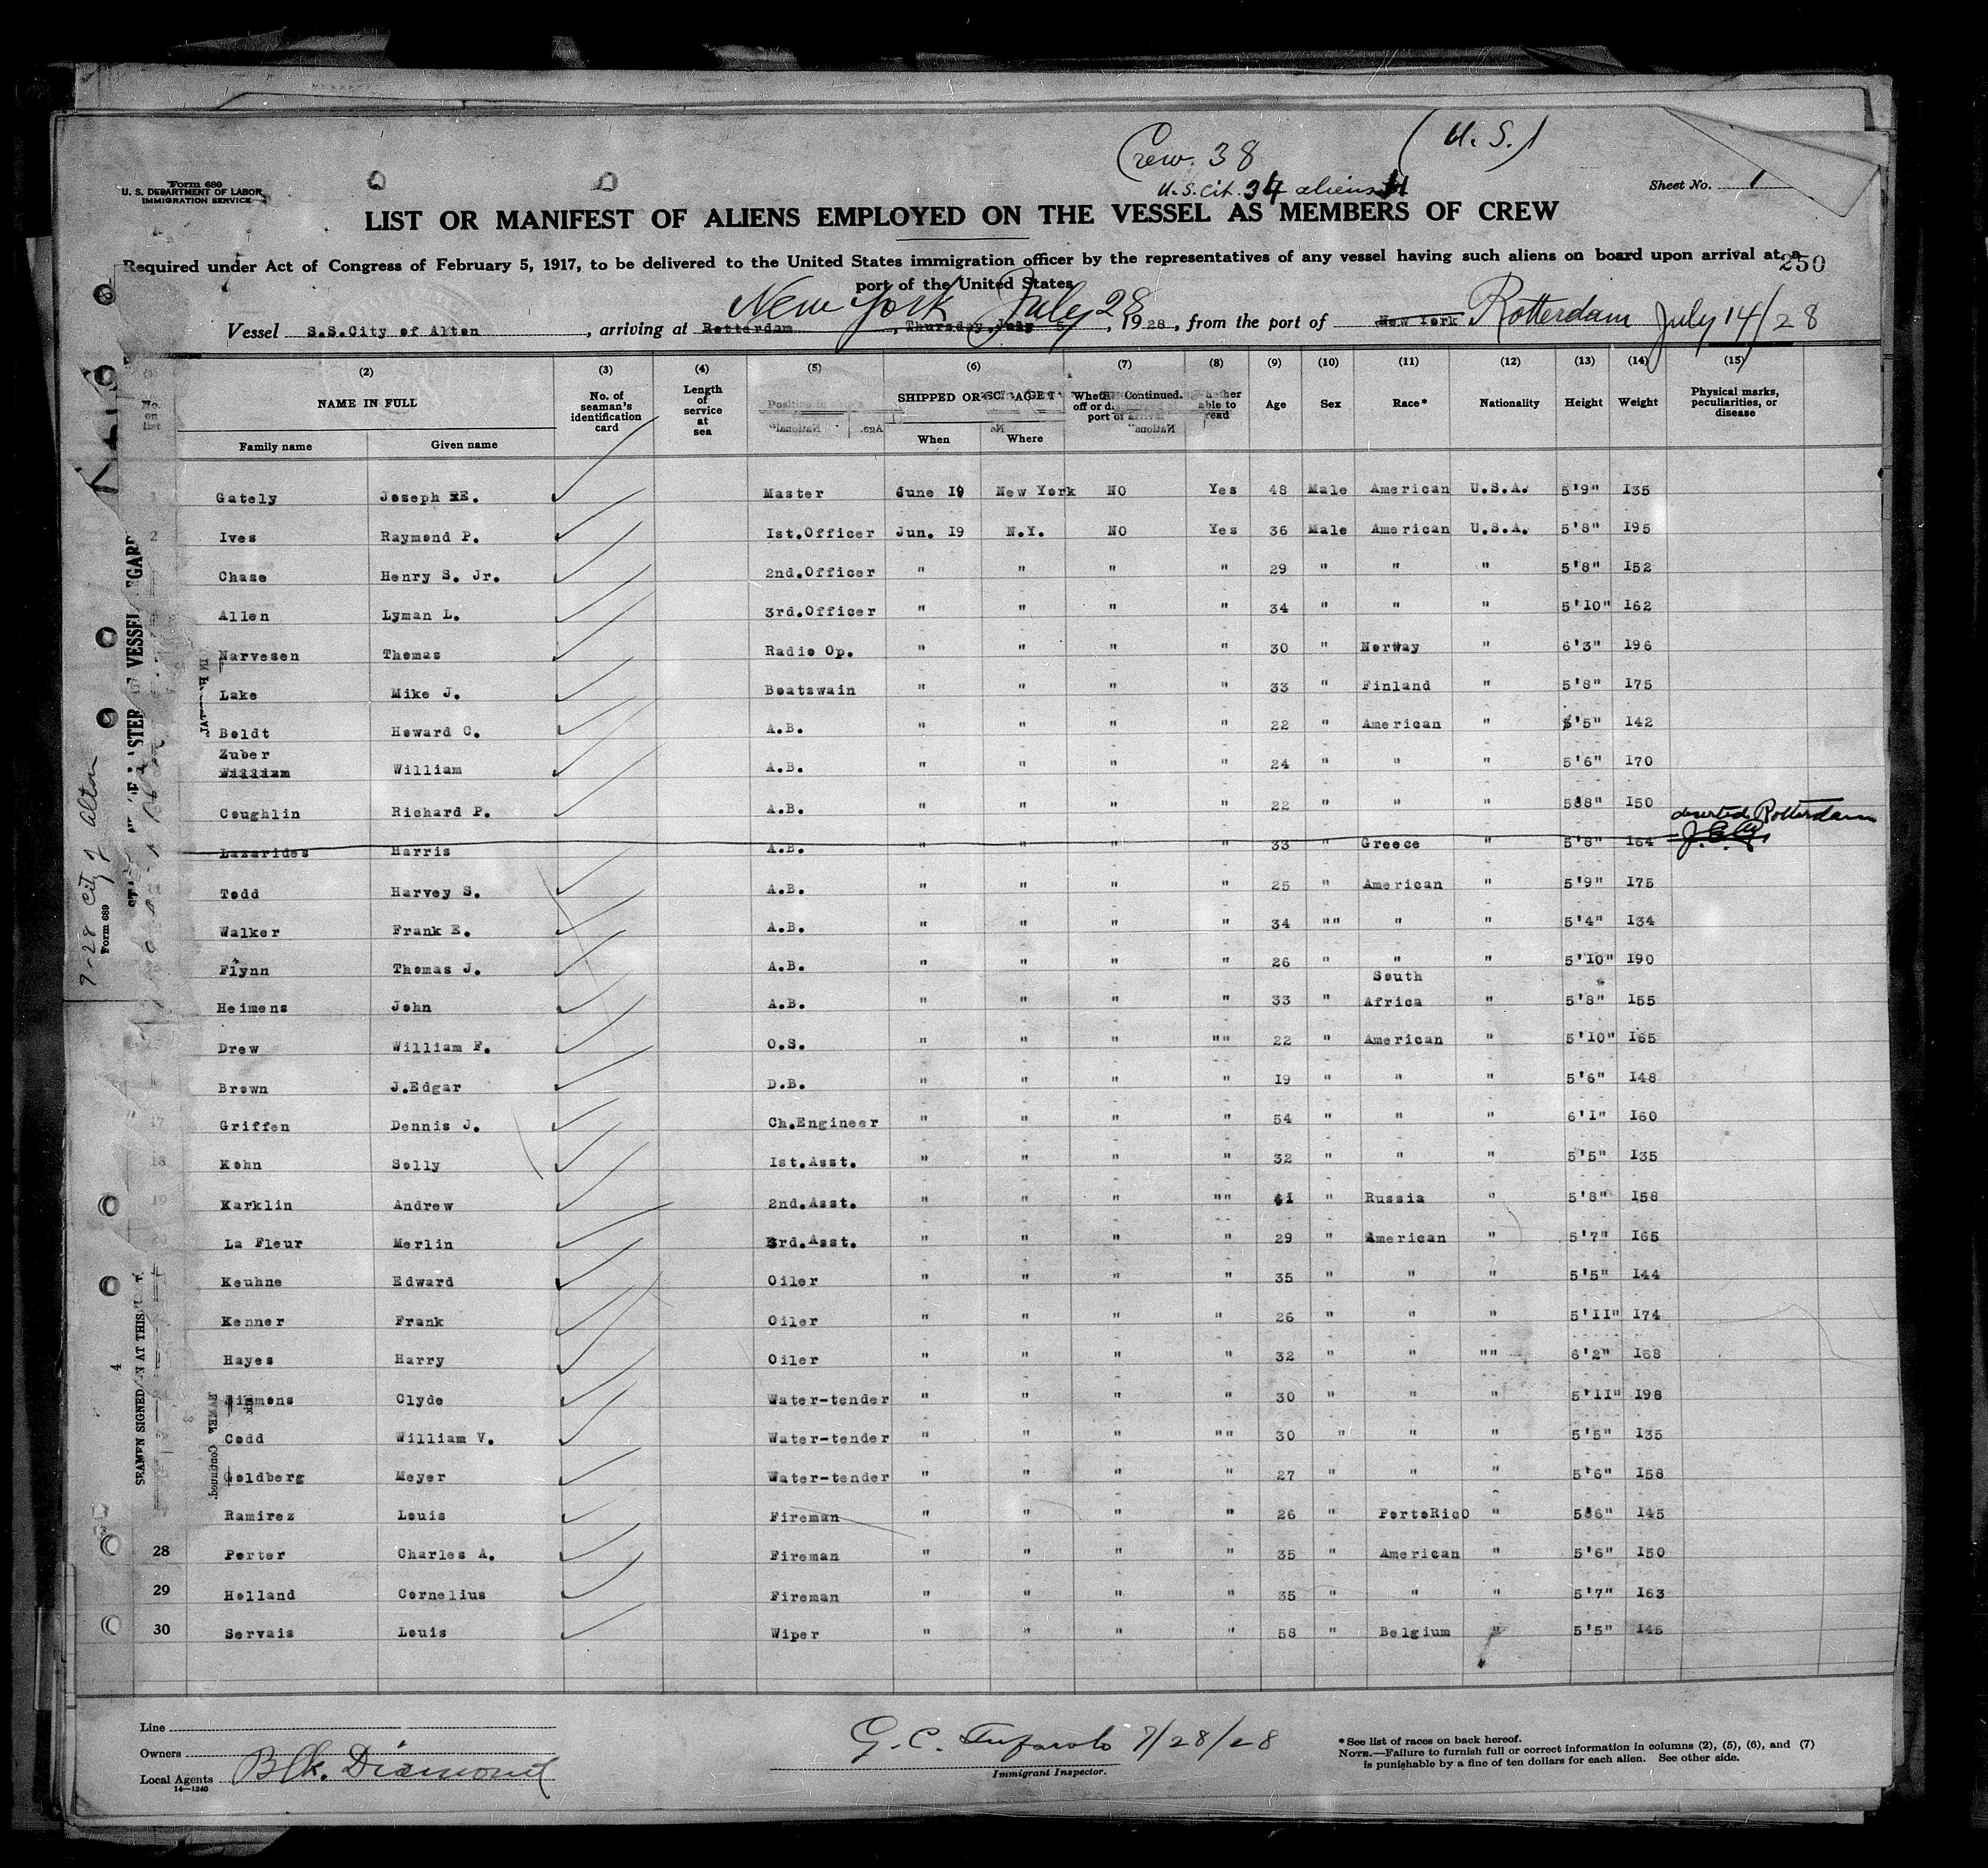 Crew. 38
(U.S.)
U.S. Cit. 34 aliens 4
Form 689
U. S. DEPARTMENT OF LABOR
IMMIGRATION SERVICE
Sheet No. 1
LIST OR MANIFEST OF ALIENS EMPLOYED ON THE VESSEL AS MEMBERS OF CREW
Required under Act of Congress of February 5, 1917, to be delivered to the United States immigration officer by the representatives of any vessel having such aliens on board upon arrival at a
port of the United States
250
New York July 28 Rotterdam July 14/28
Vessel S.S.City of Alton, arriving at Rotterdam, Thursday, July 5, 1928, from the port of New York
(2) (3) (4) (5) (6) (7) (8) (9) (10) (11) (12) (13) (14) (15)
NAME IN FULL
Family name Given name
No. of seaman's identification card
Length of service at sea
SHIPPED OR
When Where
Continued.
Whether able to read
Age Sex Race* Nationality Height Weight
Physical marks, peculiarities, or disease
1 Gately Joseph E. Master June I9 New York NO Yes 48 Male American U.S.A. 5'9" I35
2 Ives Raymond P. Ist.Officer Jun. I9 N.Y. NO Yes 36 Male American U.S.A. 5'8" I95
Chase Henry S. Jr. 2nd.Officer " " " " 29 " " " 5'8" I52
Allen Lyman L. 3rd.Officer " " " " 34 " " " 5'IO" I62
Narvesen Thomas Radio Op. " " " " 30 " Norway " 6'3" I96
Lake Mike J. Boatswain " " " " 33 " Finland " 5'8" I75
Boldt Howard C. A.B. " " " " 22 " American " 5'5" I42
Zuber
William William A.B. " " " " 24 " " " 5'6" I70
Coughlin Richard P. A.B. " " " " 22 " " " 5'8" I50
deserted Rotterdam
Lazarides Harris A.B. " " " " 33 " Greece " 5'8" I64
Todd Harvey S. A.B. " " " " 25 " American " 5'9" I75
Walker Frank E. A.B. " " " " 34 "" " " 5'4" I34
Flynn Thomas J. A.B. " " " " 26 " " " 5'IO" I90
South
Heimens John A.B. " " " " 33 " Africa " 5'8" I55
Drew William F. O.S. " " " "" 22 " American " 5'IO" I65
Brown J.Edgar D.B. " " " " I9 " " " 5'6" I48
17 Griffen Dennis J. Ch.Engineer " " " " 54 " " " 6'I" I60
18 Kohn Solly Ist.Asst. " " " " 32 " " " 5'5" I35
19 Karklin Andrew 2nd.Asst. " " " "" 4I " Russia " 5'8" I58
La Fleur Merlin 3rd.Asst. " " " " 29 " American " 5'7" I65
Keuhne Edward Oiler " " " " 35 " " " 5'5" I44
Kenner Frank Oiler " " " " 26 " " " 5'II" I74
Hayes Harry Oiler " " " " 32 " " "" 6'2" I68
Simmons Clyde Water-tender " " " " 30 " " " 5'II" I98
Codd William V. Water-tender " " " "" 30 " " " 5'5" I35
Goldberg Meyer Water-tender " " " " 27 " " " 5'6" I58
Ramirez Louis Fireman " " " " 26 " PortoRicO " 5'6" I45
28 Porter Charles A. Fireman " " " " 35 " American " 5'6" I50
29 Holland Cornelius Fireman " " " " 35 " " " 5'7" I63
30 Servais Louis Wiper " " " " 58 " Belgium " 5'5" I45
7-28 City of Alton
Form 689
SEAMEN SIGNED ON AT THIS
4
Continued.
Line
Owners
Local Agents Blk. Diamond
14—1240
G. C. 7/28/28
Immigrant Inspector.
* See list of races on back hereof.
NOTE.—Failure to furnish full or correct information in columns (2), (5), (6), and (7)
is punishable by a fine of ten dollars for each alien. See other side.